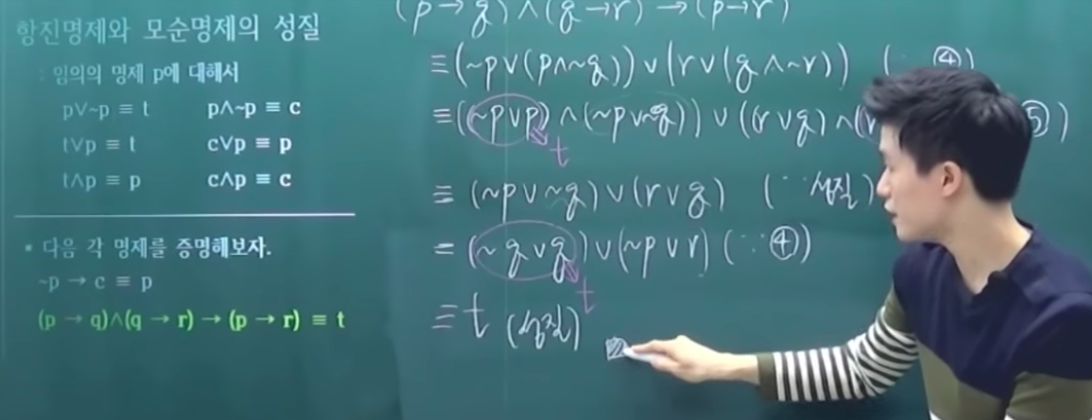 항진명제와 모순명제의 성질
: 임의의 명제 p에 대해서
p∨~p ≡ t p∧~p ≡ c
t∨p ≡ t c∨p ≡ p
t∧p ≡ p c∧p ≡ c
* 다음 각 명제를 증명해보자.
~p → c ≡ p
(p → q)∧(q → r) → (p → r) ≡ t
(p → q) ∧ (q → r) → (p → r)
≡ (~p∨(p∧~q)) ∨ (r∨(q∧~r)) (∵ ④)
≡ ((~p∨p) ∧ (~p∨~q)) ∨ ((r∨q) ∧ ( ⑤)
t
≡ (~p∨~q) ∨ (r∨q) (∵ 성질)
= (~q∨q) ∨ (~p∨r) (∵ ④)
t
≡ t (성질)